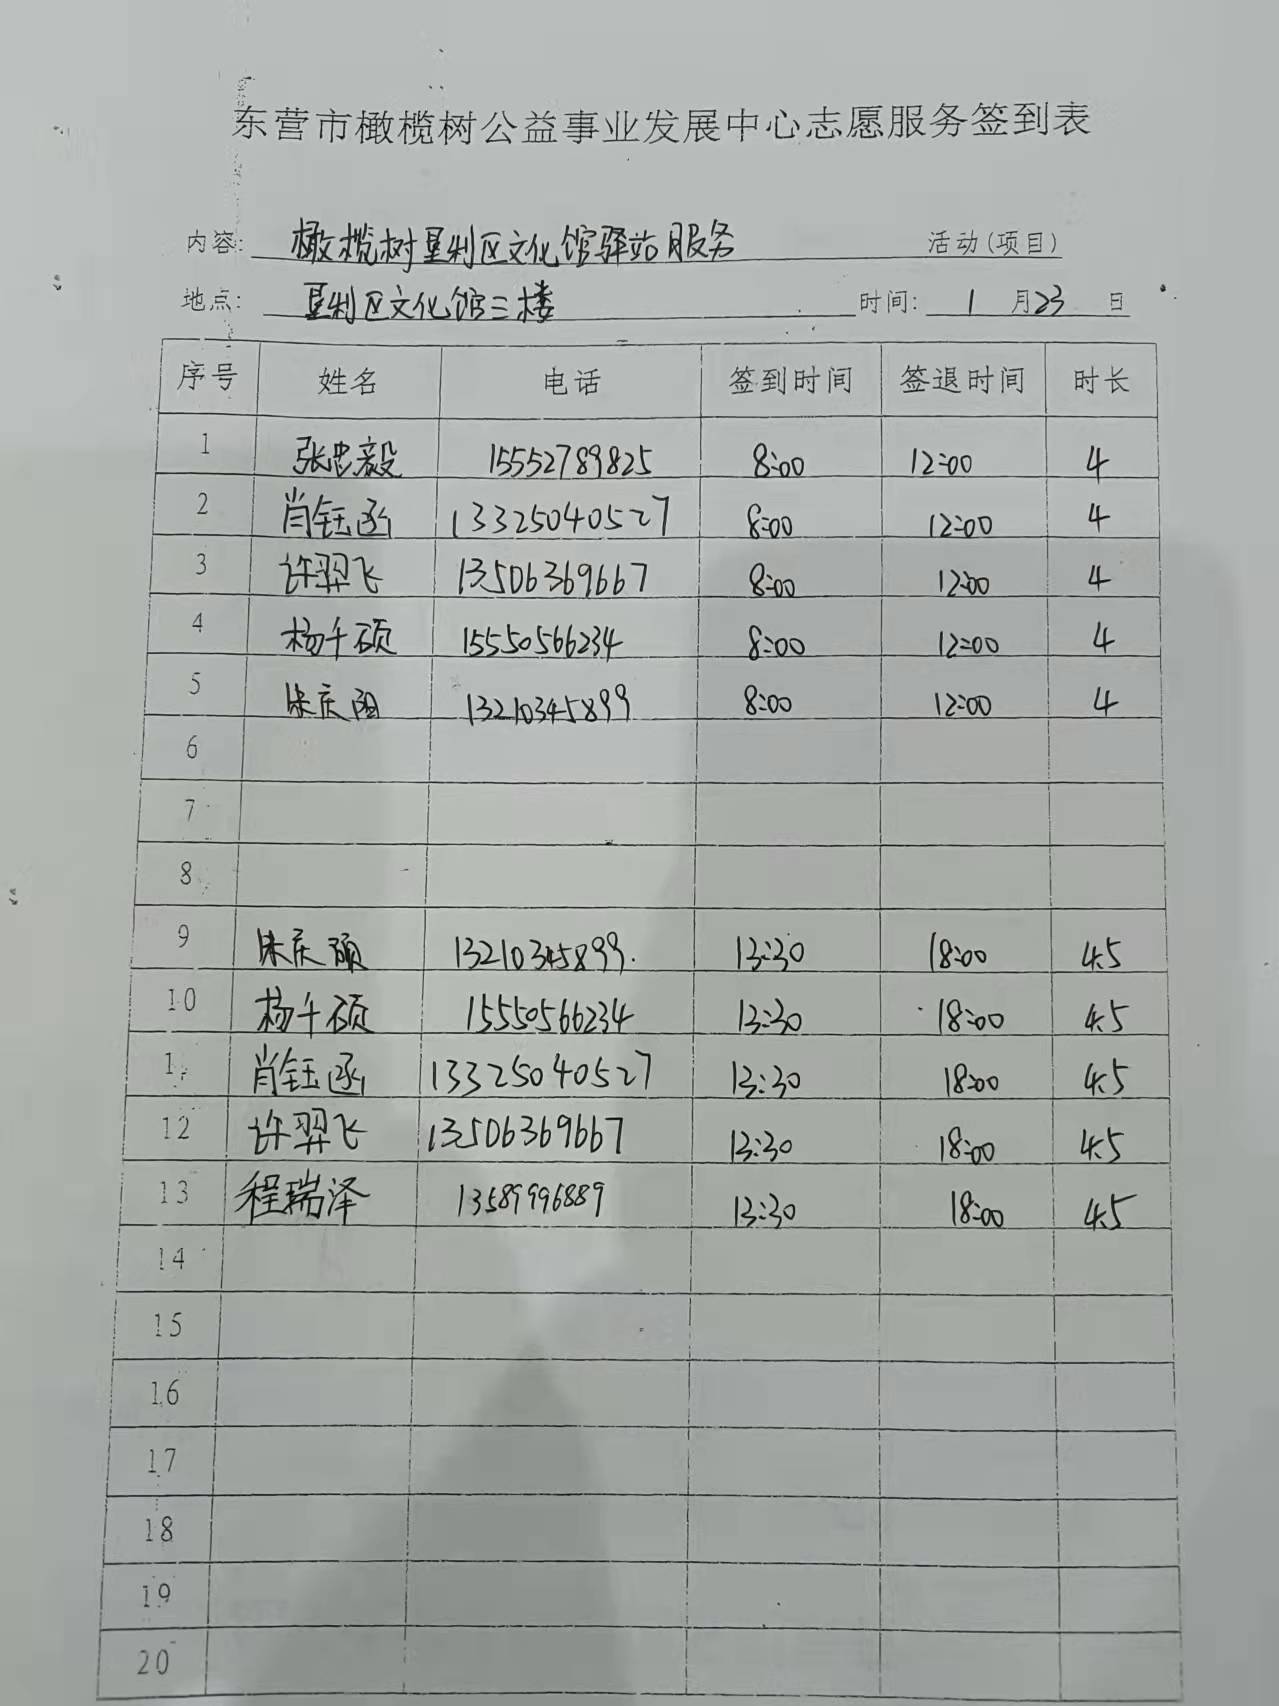 东营市橄榄树公益事业发展中心志愿服务签到表
内容: 橄榄树垦利区文化馆驿站服务 活动(项目)
地点: 垦利区文化馆三楼 时间: 1月23日
序号 姓名 电话 签到时间 签退时间 时长
1 张忠毅 15552789825 8:00 12:00 4
2 肖钰函 13325040527 8:00 12:00 4
3 许羿飞 13506369667 8:00 12:00 4
4 杨千硕 15550566234 8:00 12:00 4
5 13210345899 8:00 12:00 4
6
7
8
9 13210345899. 13:30 18:00 4.5
10 杨千硕 15550566234 13:30 18:00 4.5
11 肖钰函 13325040527 13:30 18:00 4.5
12 许羿飞 13506369667 13:30 18:00 4.5
13 程瑞泽 13589996889 13:30 18:00 4.5
14
15
16
17
18
19
20